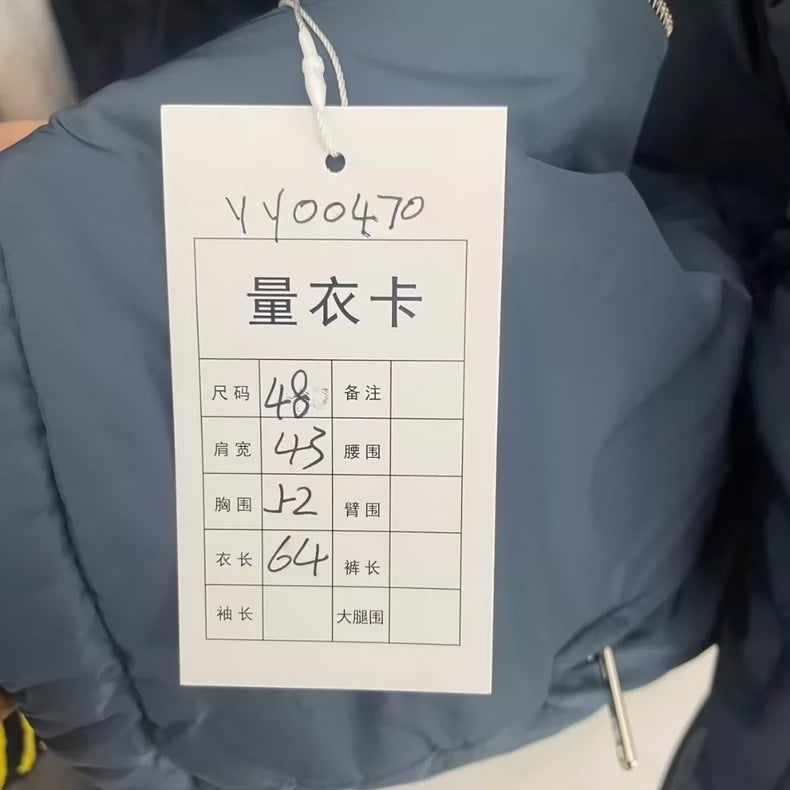 YY00470
量衣卡
尺码 48 备注
肩宽 43 腰围
胸围 52 臂围
衣长 64 裤长
袖长 大腿围